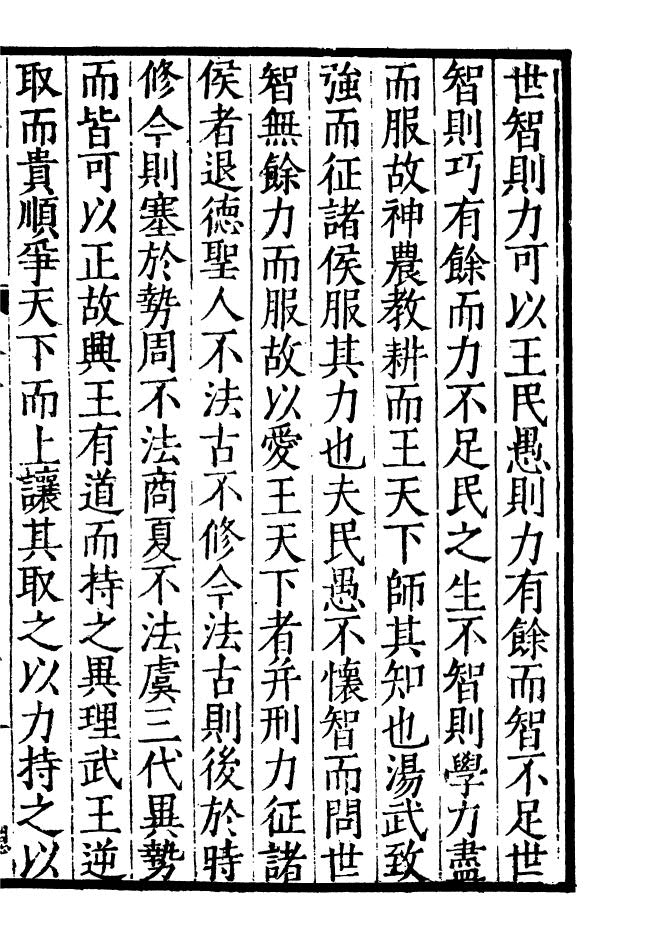 世智則力可以王民愚則力有餘而智不足世
智則巧有餘而力不足民之生不智則學力盡
而服故神農教耕而王天下師其知也湯武致
強而征諸侯服其力也夫民愚不懷智而問世
智無餘力而服故以愛王天下者并刑力征諸
侯者退德聖人不法古不修今法古則後於時
修今則塞於勢周不法商夏不法虞三代異勢
而皆可以正故興王有道而持之異理武王逆
取而貴順爭天下而上讓其取之以力持之以